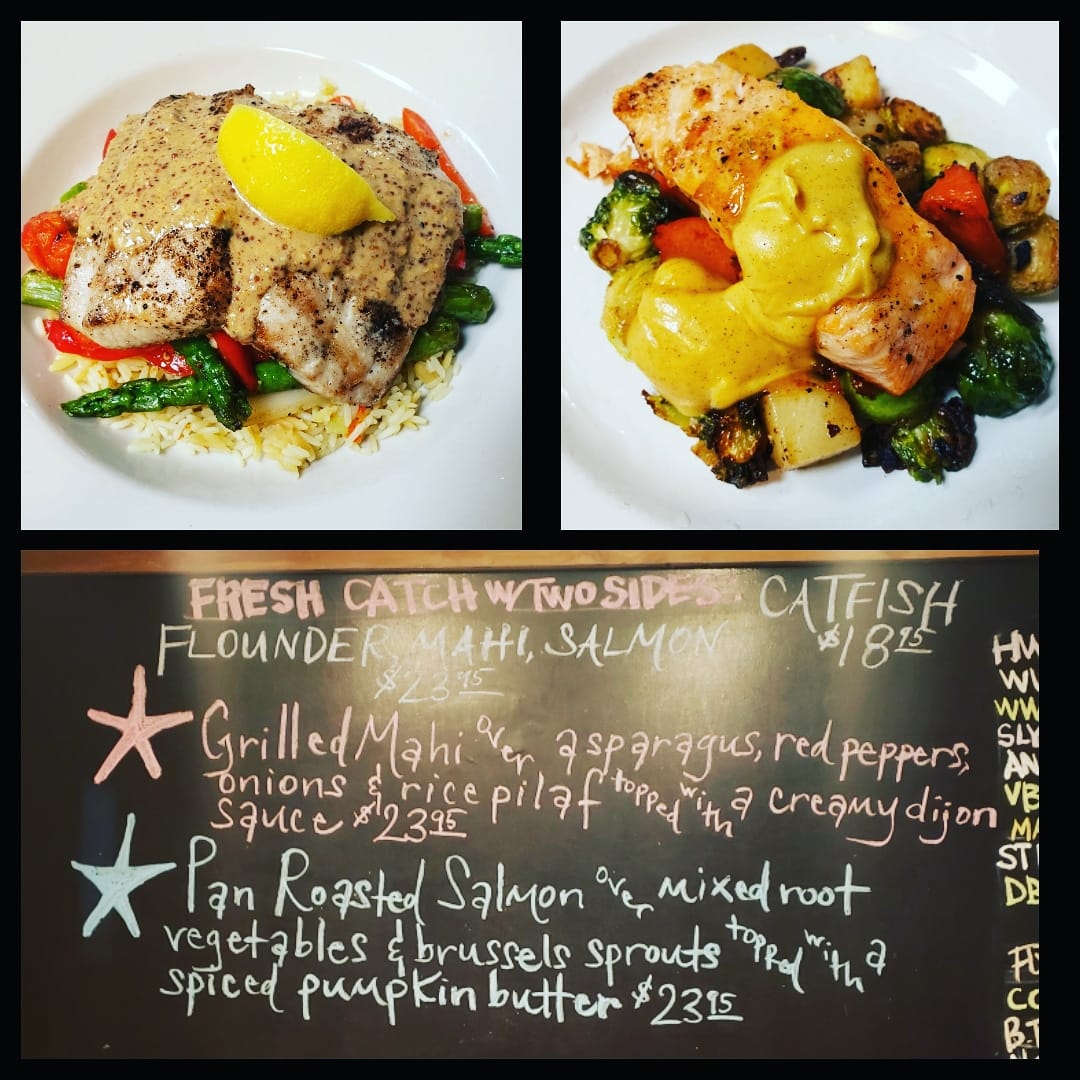 FRESH CATCH W/TWO SIDES. CATFISH
FLOUNDER, MAHI, SALMON $18 95
$23 95
Grilled Mahi over asparagus, red peppers,
onions & rice pilaf topped with a creamy dijon
sauce $23 95
Pan Roasted Salmon over mixed root
vegetables & brussels sprouts topped with a
spiced pumpkin butter $23 95
HW
WW
SLY
AN
VB
ST
DE
CO
B.T